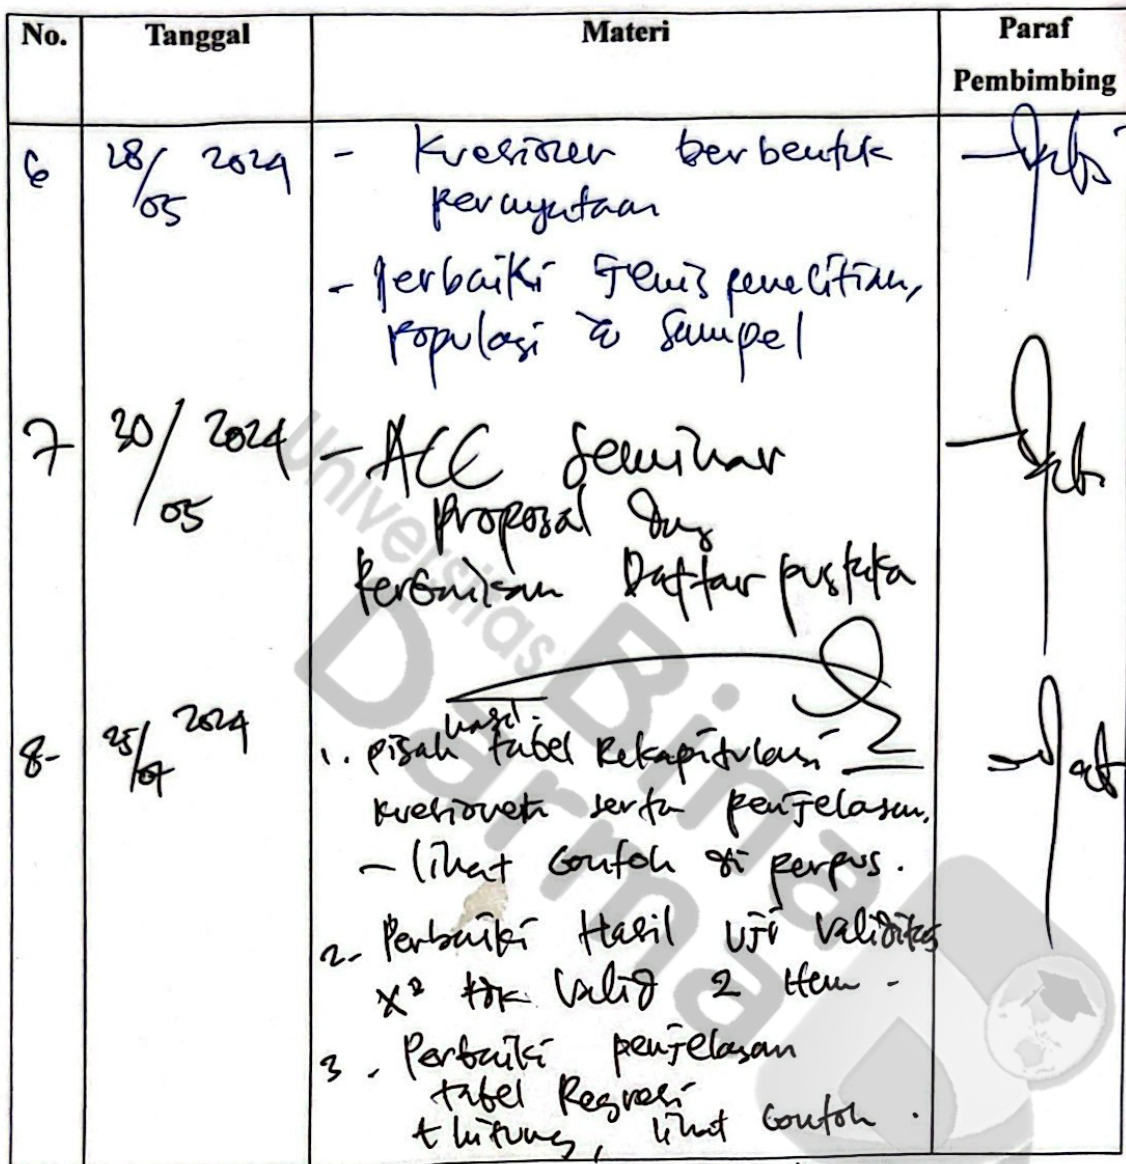 No. Tanggal Materi Paraf
Pembimbing
6 28/05 2024 - Kuesioner berbentuk
pernyataan
- Perbaiki Jenis penelitian,
populasi & Sampel
7 30/05 2024 - ACC Seminar
proposal dng
Perbaikan Daftar pustaka
8- 25/07 2024
hasil
1. pisah tabel Rekapitulasi
kuesioner serta penjelasan.
- lihat contoh di perpus.
2. Perbaiki Hasil Uji Validitas
X² tdk valid 2 item -
3. Perbaiki penjelasan
tabel Regresi
t hitung, lihat contoh.
Universitas
Bina
Darma